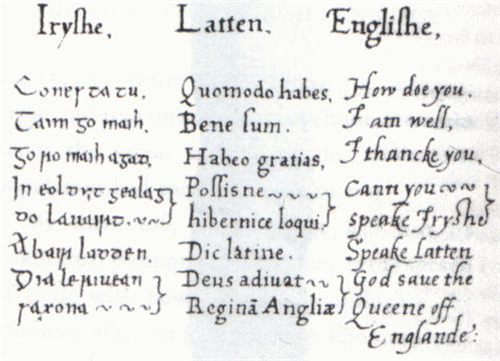 Iryshe. Latten. Englishe.
Cones ta tu. Quomodo habes. How doe you.
Taim go maih. Bene sum. I am well.
Go ro maih agad. Habeo gratias. I thancke you.
In gealag Possisne Cann you
do lauairt. hibernice loqui. speake Iryshe
Abair ladden. Dic latine. Speake latten
Dia le riuean Deus adiuat God save the
saxona Reginā Angliæ Queene off
Englande.